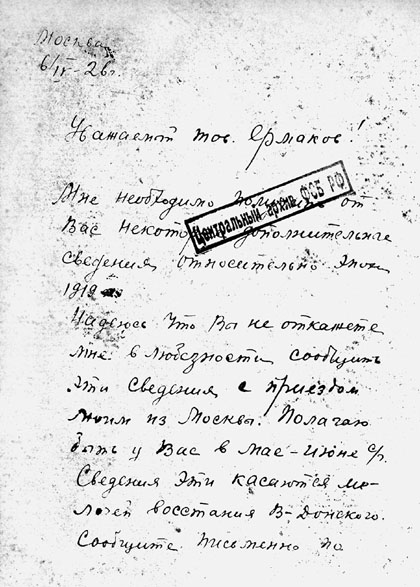 Москва
6/IV-26г.
Уважаемый тов. Ермаков!
Мне необходимо от
Центральный архив ФСБ РФ
Вас дополнительные
сведения относительно эпохи
1919
Надеюсь что Вы не откажете
мне в любезности сообщить
эти сведения с приездом
моим из Москвы. Полагаю
быть у Вас в мае-июне с/г.
Сведения эти касаются ме-
лочей восстания В-Донского.
Сообщите письменно по